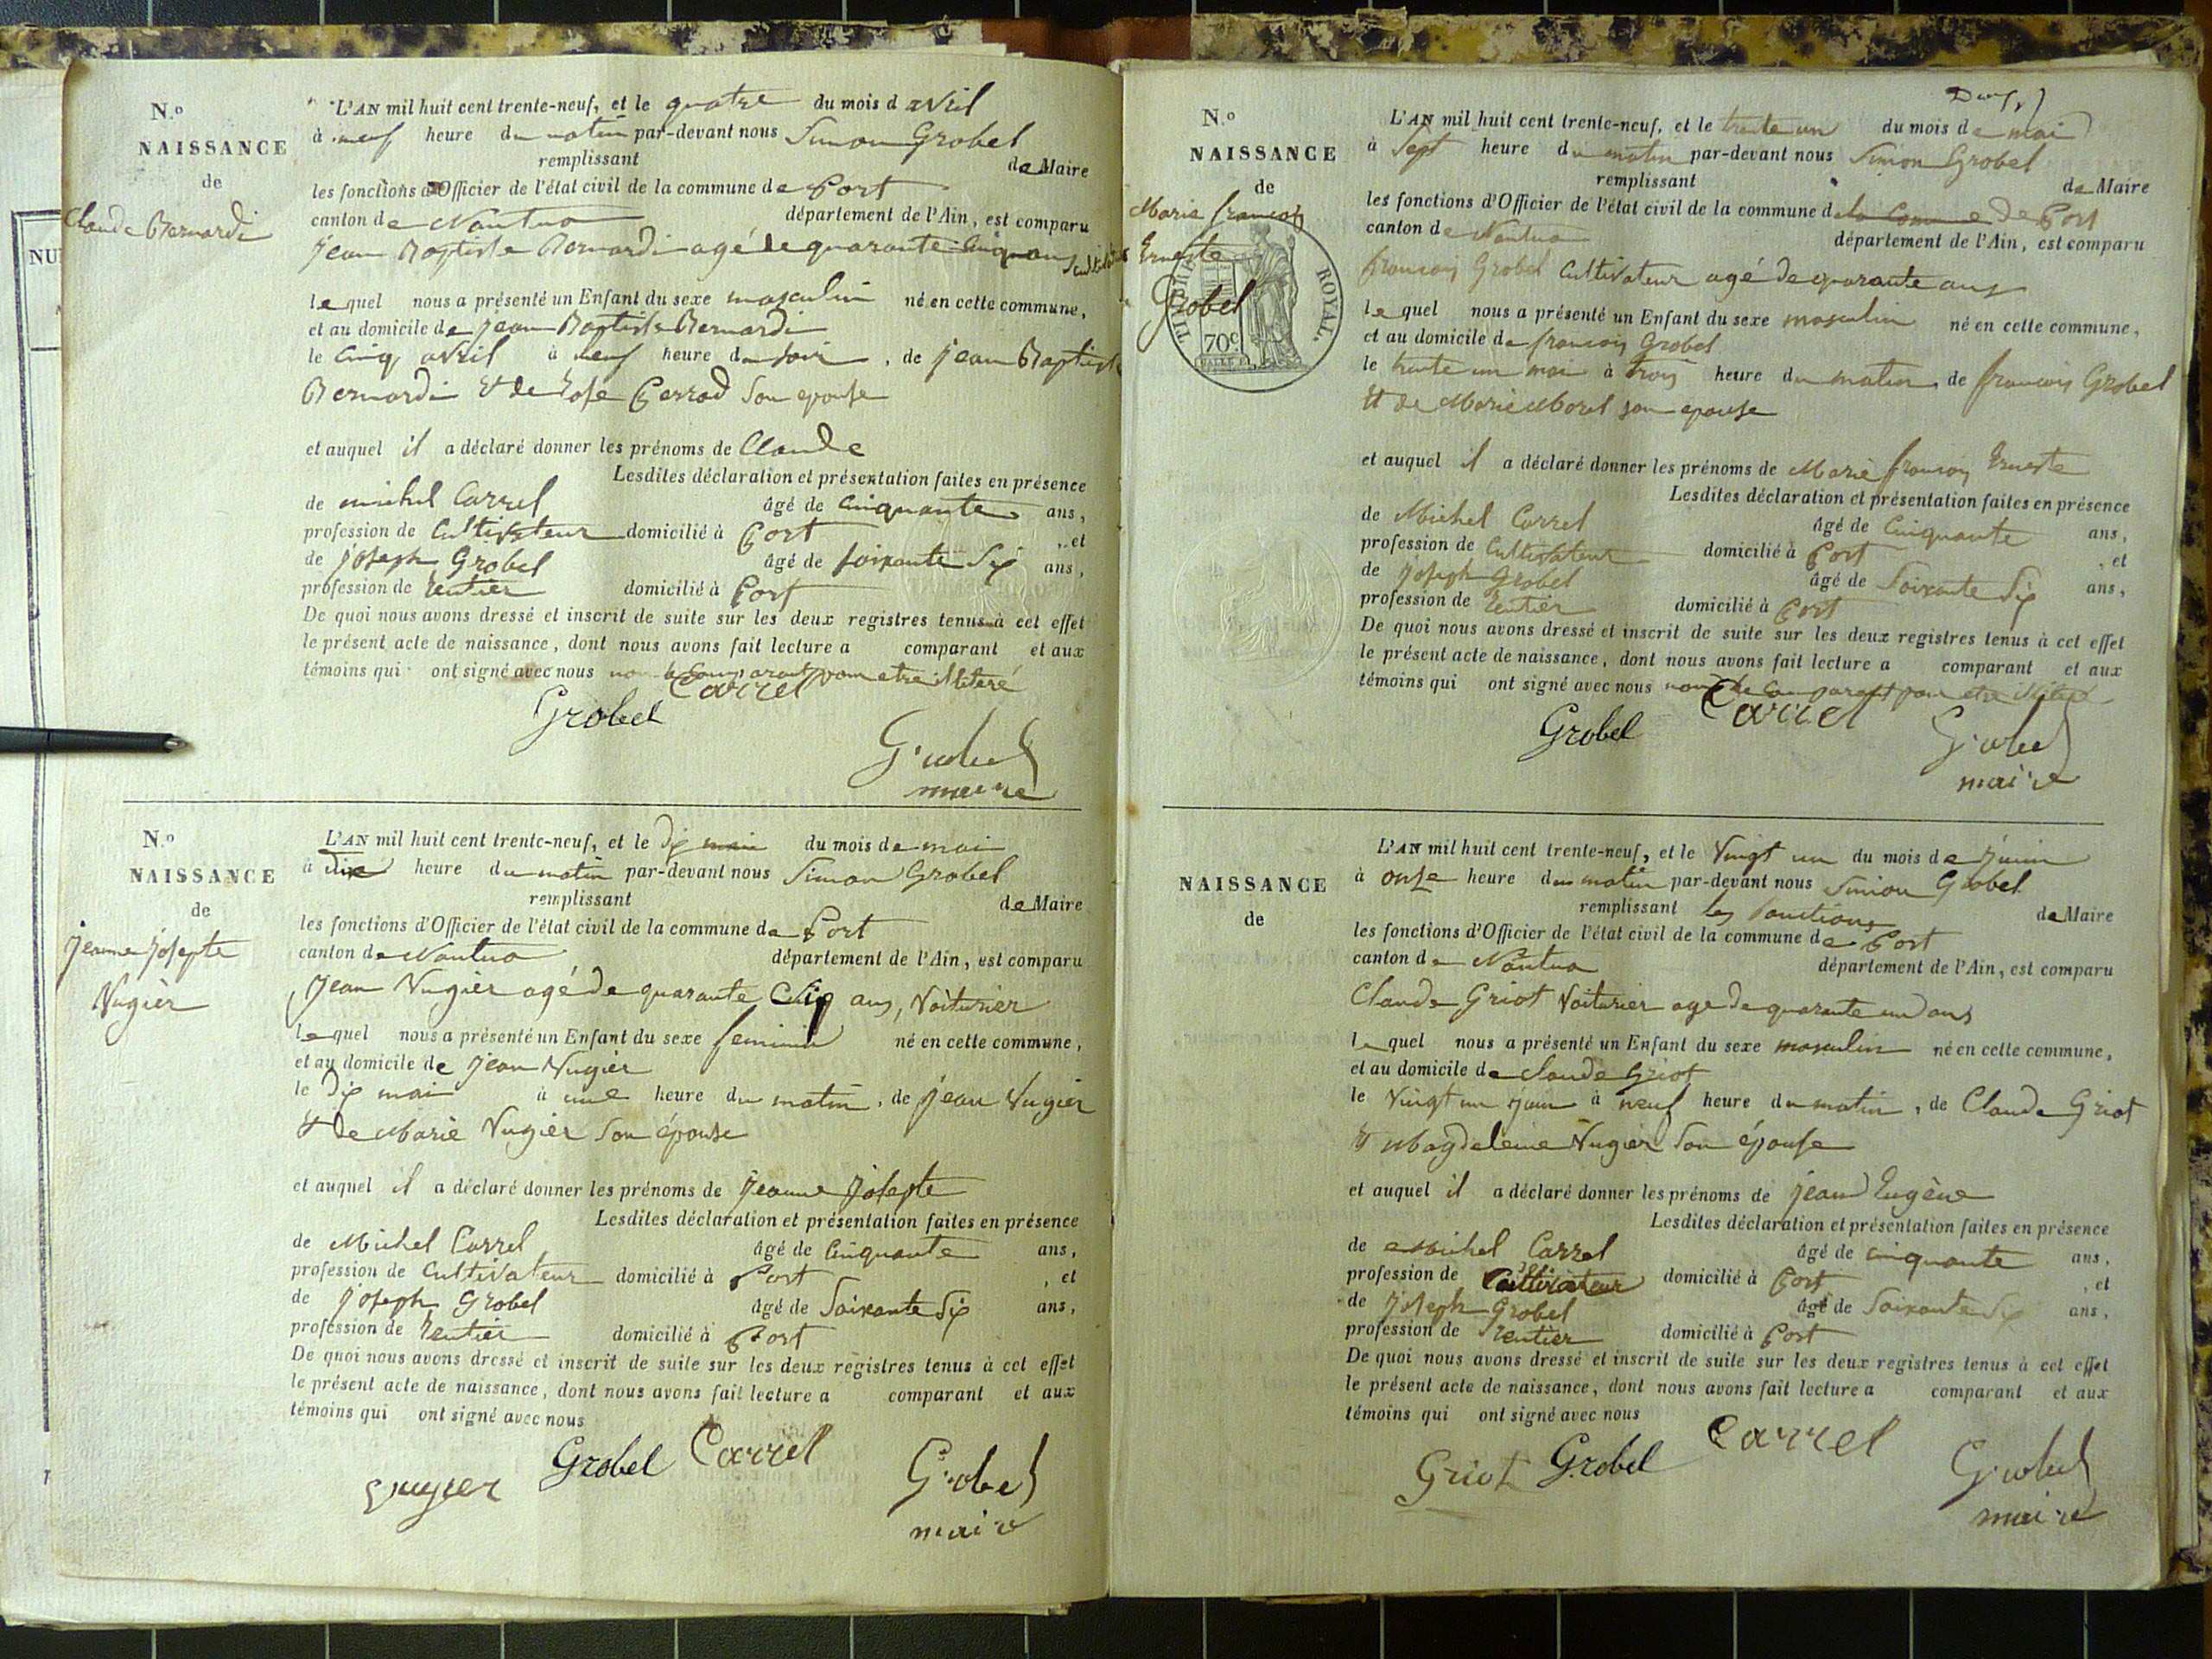 N.o
NAISSANCE
de
Claude Bernardi
L'AN mil huit cent trente-neuf, et le quatre du mois d avril
à neuf heure du matin par-devant nous Simon Grobel
remplissant de Maire
les fonctions d'Officier de l'état civil de la commune de Port
canton de Nantua département de l'Ain, est comparu
jean Baptiste Bernardi agé de quarante cinq ans cultivateur
lequel nous a présenté un Enfant du sexe masculin né en cette commune,
et au domicile de jean Baptiste Bernardi
le cinq avril à neuf heure du soir, de jean Baptiste
Bernardi et de Rose Perrod son epouse
et auquel il a déclaré donner les prénoms de Claude
Lesdites déclaration et présentation faites en présence
de michel Carrel âgé de cinquante ans,
profession de Cultivateur domicilié à Port, et
de joseph Grobel âgé de soixante six ans,
profession de rentier domicilié à Port
De quoi nous avons dressé et inscrit de suite sur les deux registres tenus à cet effet
le présent acte de naissance, dont nous avons fait lecture a comparant et aux
témoins qui ont signé avec nous non le comparant pour etre illiteré
Carrel
Grobel
Grobel
maire
N.o
NAISSANCE
de
jeanne josepte
Vugier
L'AN mil huit cent trente-neuf, et le dix mai du mois de mai
à dix heure du matin par-devant nous Simon Grobel
remplissant de Maire
les fonctions d'Officier de l'état civil de la commune de Port
canton de Nantua département de l'Ain, est comparu
Jean Vugier agé de quarante ans, Voiturier
lequel nous a présenté un Enfant du sexe feminin né en cette commune,
et au domicile de jean Vugier
le dix mai à une heure du matin, de jean Vugier
et de Marie Vugier son épouse
et auquel il a déclaré donner les prénoms de jeanne josepte
Lesdites déclaration et présentation faites en présence
de Michel Carrel âgé de cinquante ans,
profession de Cultivateur domicilié à Port, et
de joseph Grobel âgé de soixante six ans,
profession de rentier domicilié à Port
De quoi nous avons dressé et inscrit de suite sur les deux registres tenus à cet effet
le présent acte de naissance, dont nous avons fait lecture a comparant et aux
témoins qui ont signé avec nous
Vugier Grobel Carrel Grobel
maire
N.o
NAISSANCE
de
Marie francois
Erneste
Grobel
TIMBRE ROYAL.
70c
L'AN mil huit cent trente-neuf, et le trente un du mois de mai
à sept heure du matin par-devant nous Simon Grobel
remplissant de Maire
les fonctions d'Officier de l'état civil de la commune de la Commune de Port
canton de Nantua département de l'Ain, est comparu
francois Grobel Cultivateur agé de quarante ans
lequel nous a présenté un Enfant du sexe masculin né en cette commune,
et au domicile de francois Grobel
le trente un mai à trois heure du matin, de francois Grobel
et de Marie Morel son epouse
et auquel il a déclaré donner les prénoms de Marie francois Erneste
Lesdites déclaration et présentation faites en présence
de Michel Carrel âgé de cinquante ans,
profession de Cultivateur domicilié à Port, et
de joseph Grobel âgé de soixante six ans,
profession de rentier domicilié à Port
De quoi nous avons dressé et inscrit de suite sur les deux registres tenus à cet effet
le présent acte de naissance, dont nous avons fait lecture a comparant et aux
témoins qui ont signé avec nous non le comparant pour etre
Grobel Carrel Grobel
maire
NAISSANCE
de
L'AN mil huit cent trente-neuf, et le vingt un du mois de juin
à onze heure du matin par-devant nous Simon Grobel
remplissant les fonctions de Maire
les fonctions d'Officier de l'état civil de la commune de Port
canton de Nantua département de l'Ain, est comparu
Claude Griot Voiturier agé de quarante un ans
lequel nous a présenté un Enfant du sexe masculin né en cette commune,
et au domicile de Claude Griot
le vingt un juin à neuf heure du matin, de Claude Griot
et Magdeleine Vugier son épouse
et auquel il a déclaré donner les prénoms de jean Eugène
Lesdites déclaration et présentation faites en présence
de Michel Carrel âgé de cinquante ans,
profession de Cultivateur domicilié à Port, et
de joseph Grobel âgé de soixante six ans,
profession de rentier domicilié à Port
De quoi nous avons dressé et inscrit de suite sur les deux registres tenus à cet effet
le présent acte de naissance, dont nous avons fait lecture a comparant et aux
témoins qui ont signé avec nous
Griot Grobel Carrel Grobel
maire